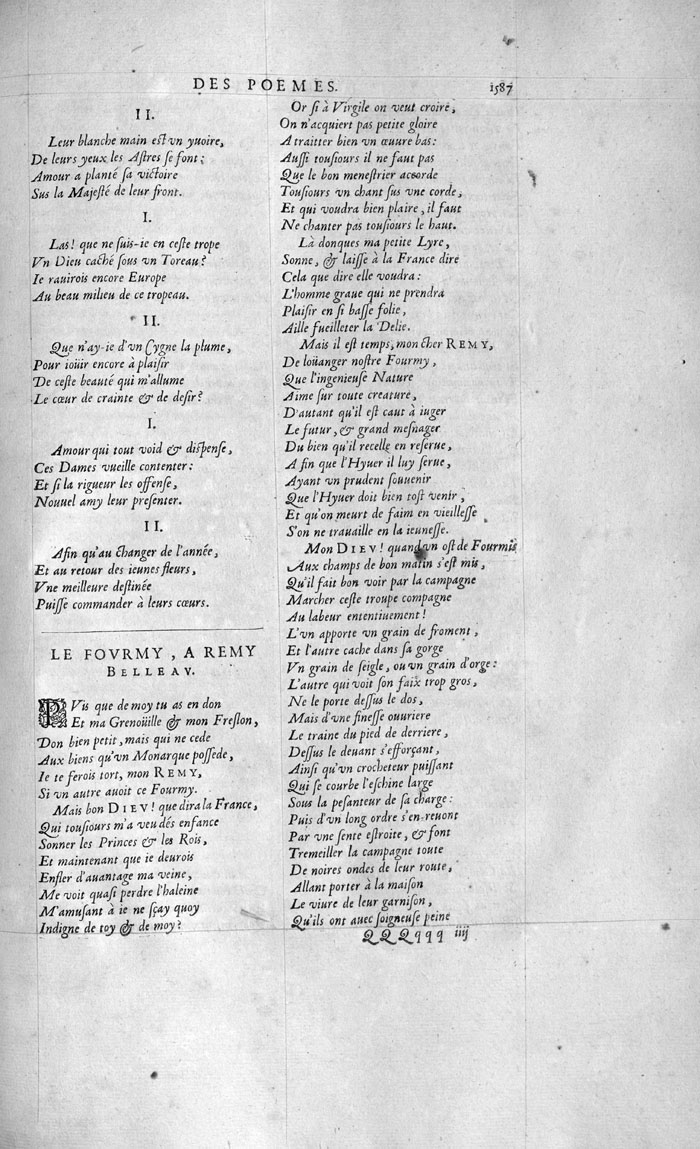 DES POEMES. 1587
II.
Leur blanche main est vn yuoire,
De leurs yeux les Astres se font;
Amour a planté sa victoire
Sus la Majesté de leur front.
I.
Las! que ne suis-ie en ceste trope
Vn Dieu caché sous vn Toreau?
Ie rauirois encore Europe
Au beau milieu de ce tropeau.
II.
Que n'ay-ie d'vn Cygne la plume,
Pour ioüir encore à plaisir
De ceste beauté qui m'allume
Le cœur de crainte & de desir?
I.
Amour qui tout void & dispense,
Ces Dames vueille contenter:
Et si la rigueur les offense,
Nouuel amy leur presenter.
II.
Afin qu'au changer de l'année,
Et au retour des ieunes fleurs,
Vne meilleure destinée
Puisse commander à leurs cœurs.
LE FOVRMY, A REMY
BELLEAV.
PVis que de moy tu as en don
Et ma Grenoüille & mon Freslon,
Don bien petit, mais qui ne cede
Aux biens qu'vn Monarque possede,
Ie te ferois tort, mon REMY,
Si vn autre auoit ce Fourmy.
Mais bon DIEV! que dira la France,
Qui tousiours m'a veu dés enfance
Sonner les Princes & les Rois,
Et maintenant que ie deurois
Enfler d'auantage ma veine,
Me voit quasi perdre l'haleine
M'amusant à ie ne sçay quoy
Indigne de toy & de moy?
Or si à Virgile on veut croire,
On n'acquiert pas petite gloire
A traitter bien vn œuure bas:
Aussi tousiours il ne faut pas
Que le bon menestrier accorde
Tousiours vn chant sus vne corde,
Et qui voudra bien plaire, il faut
Ne chanter pas tousiours le haut.
Là donques ma petite Lyre,
Sonne, & laisse à la France dire
Cela que dire elle voudra:
L'homme graue qui ne prendra
Plaisir en si basse folie,
Aille fueilleter la Delie.
Mais il est temps, mon cher REMY,
De loüanger nostre Fourmy,
Que l'ingenieuse Nature
Aime sur toute creature,
D'autant qu'il est caut à iuger
Le futur, & grand mesnager
Du bien qu'il recelle en reserue,
A fin que l'Hyuer il luy serue,
Ayant vn prudent souuenir
Que l'Hyuer doit bien tost venir,
Et qu'on meurt de faim en vieillesse
S'on ne trauaille en la ieunesse.
Mon DIEV! quand vn ost de Fourmis
Aux champs de bon matin s'est mis,
Qu'il fait bon voir par la campagne
Marcher ceste troupe compagne
Au labeur ententiuement!
L'vn apporte vn grain de froment,
Et l'autre cache dans sa gorge
Vn grain de seigle, ou vn grain d'orge:
L'autre qui voit son faix trop gros,
Ne le porte dessus le dos,
Mais d'vne finesse ouuriere
Le traine du pied de derriere,
Dessus le deuant s'efforçant,
Ainsi qu'vn crocheteur puissant
Qui se courbe l'eschine large
Sous la pesanteur de sa charge:
Puis d'vn long ordre s'en-reuont
Par vne sente estroite, & font
Tremeiller la campagne toute
De noires ondes de leur route,
Allant porter à la maison
Le viure de leur garnison,
Qu'ils ont auec soigneuse peine
QQQqqq iiij